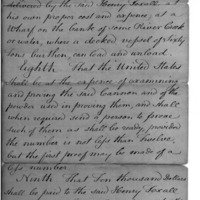 delivered by the said Henry Foxall at
his own proper cost and expence, at a
Wharf on the bank of some River Creek
or water, where a decked vessel of Sixty
Tons burthen can lie and unload.
Eighth That the United States
shall be at the expence of examining
and proving the said Cannon and of the
powder used in proving them, and shall
when required send a person to prove
such of them as shall be ready, provided
the number is not less than Twelve,
but the first proof may be made of a
less number.
Ninth That Ten thousand Dollars
shall be paid to the said Henry Foxall